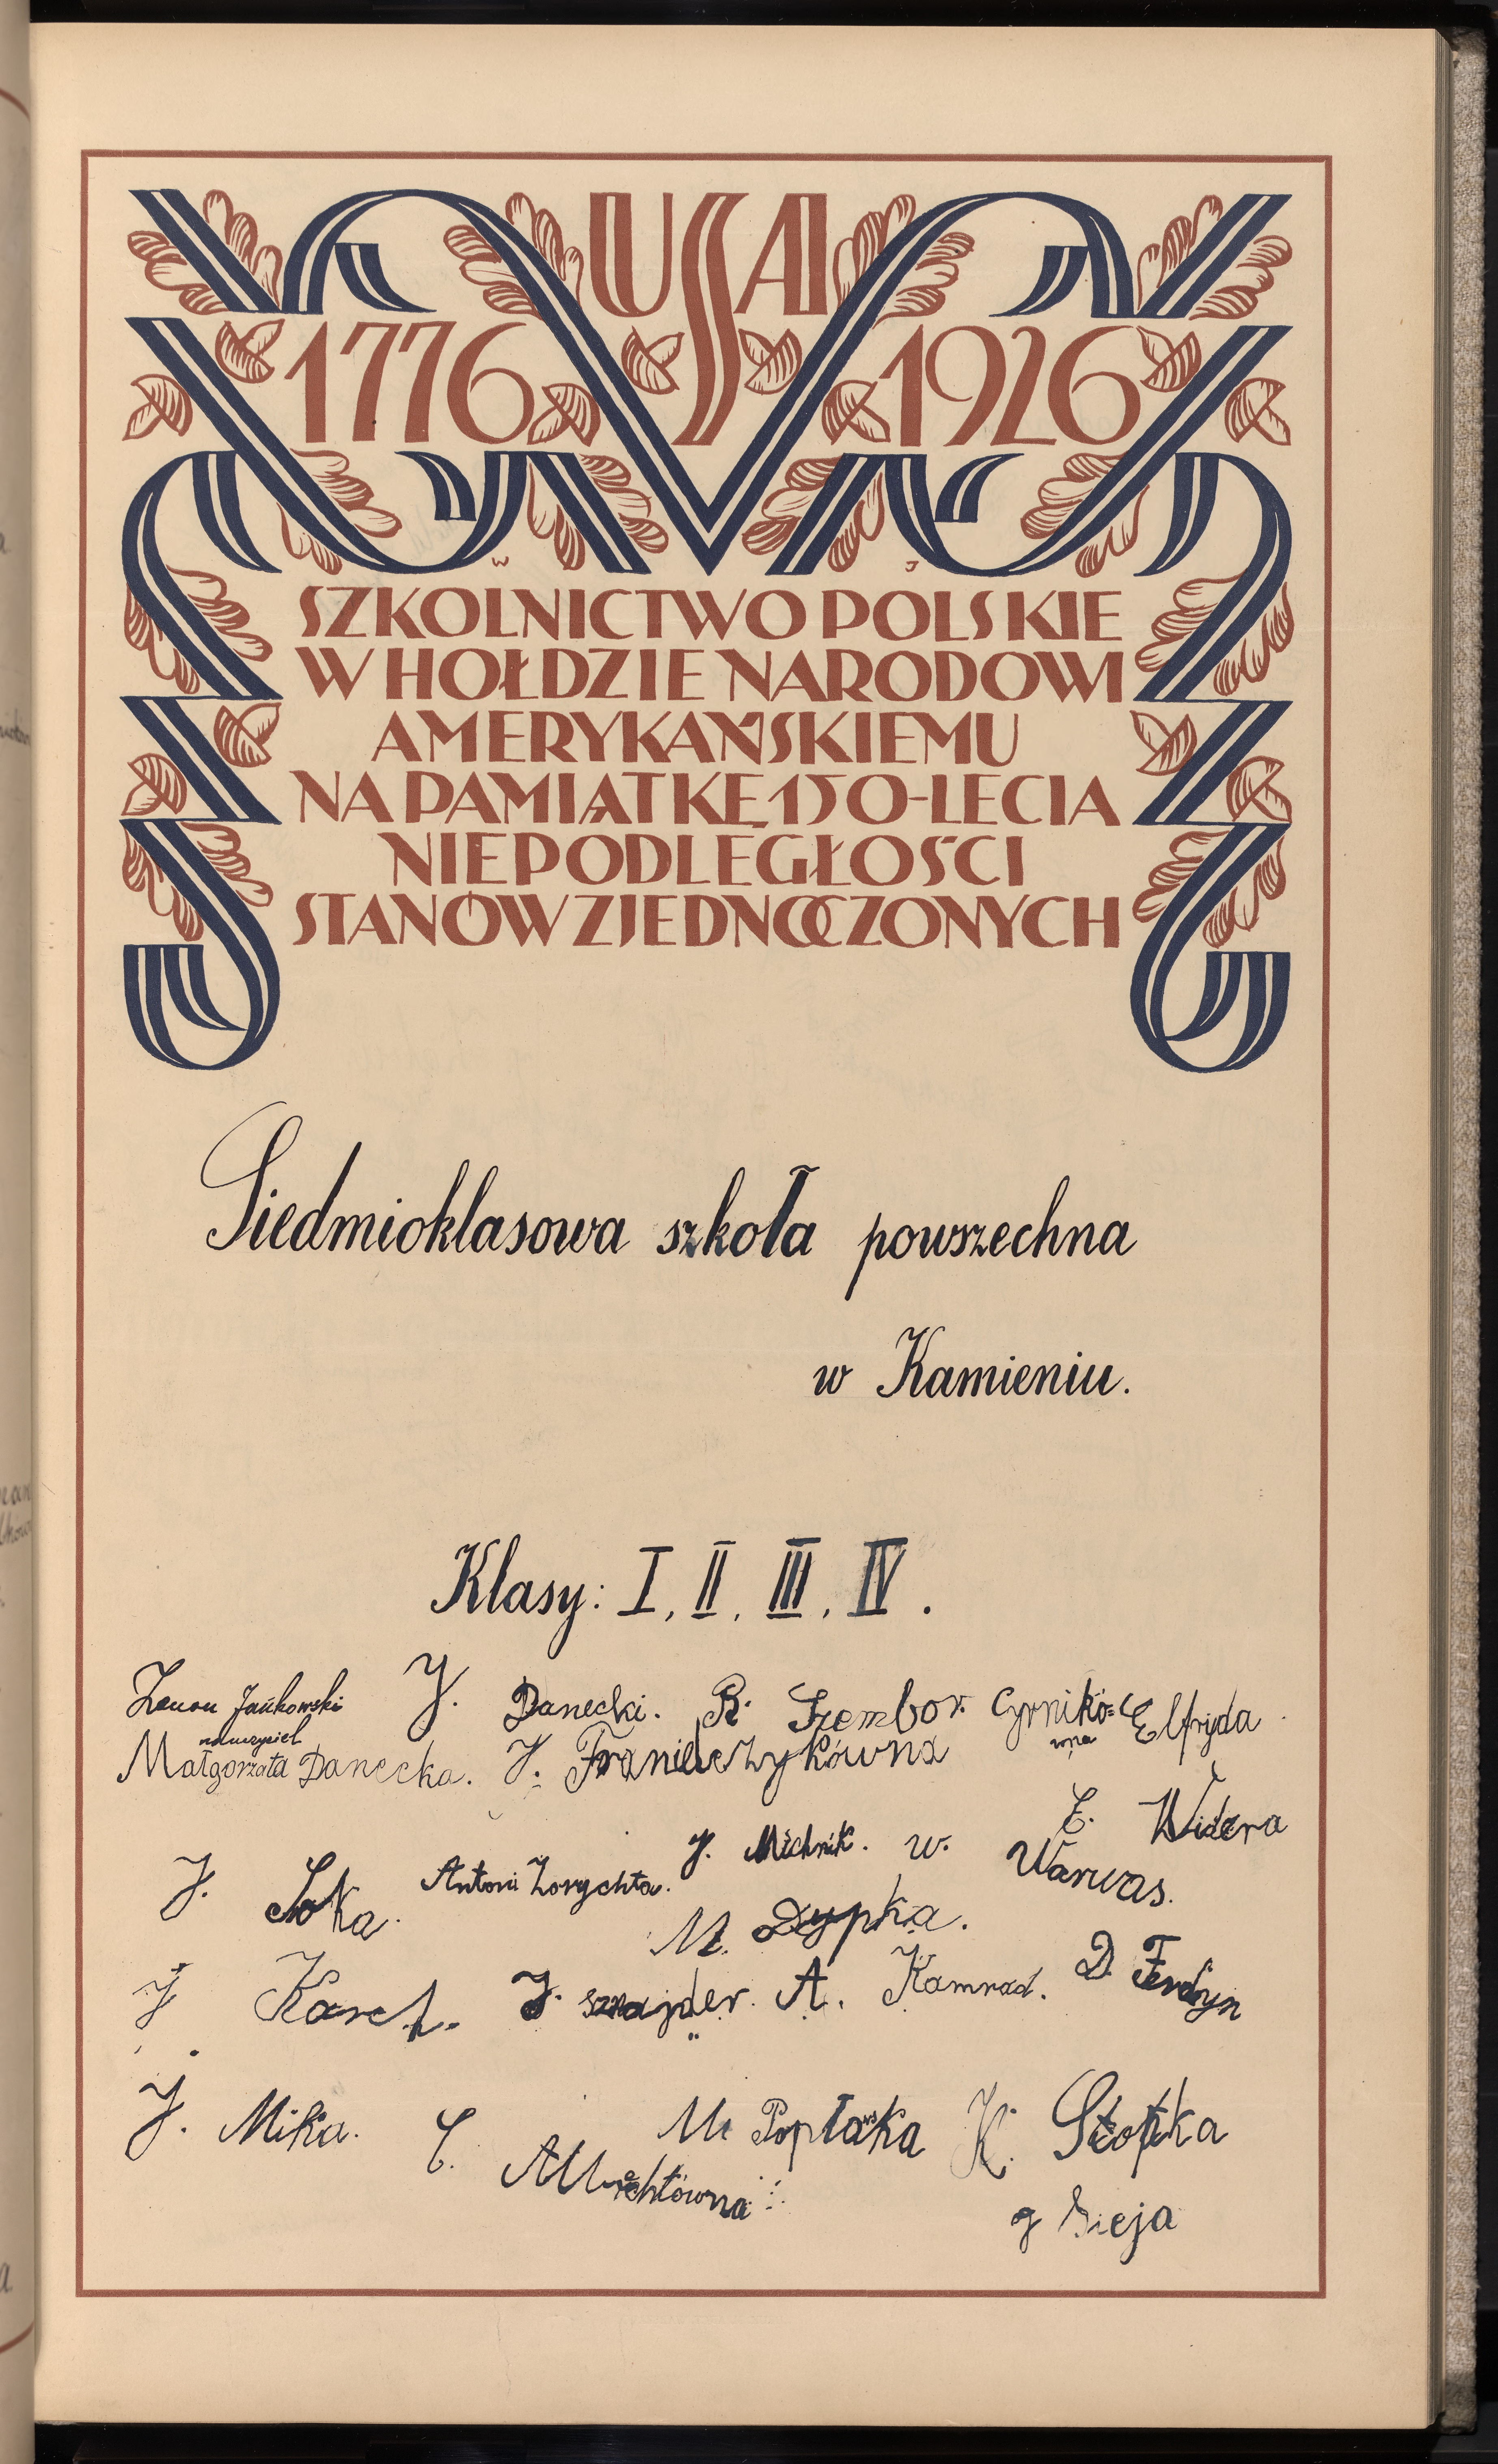 USA
1776 1926
W J
SZKOLNICTWO POLSKIE
W HOŁDZIE NARODOWI
AMERYKAŃSKIEMU
NA PAMIĄTKĘ 150-LECIA
NIEPODLEGŁOŚCI
STANÓW ZJEDNOCZONYCH
Siedmioklasowa szkoła powszechna
w Kamieniu.
Klasy: I, II, III, IV.
Zenon Jańkowski J. Danecki. R. Szembor. Cyrnikó= Elfryda
nauczyciel wna
Małgorzata Danecka. J. Franielczykówna
E. Widera
J. Soka. Antoni Zorychta. J. Michnik. W. Warwas.
M. Dypka.
J Karch. J. Sznajder. A. Kamrad. D. Ferdyn
J. Mika. M. Popławska K. Stopka
C. Albrechtówna
J Sieja